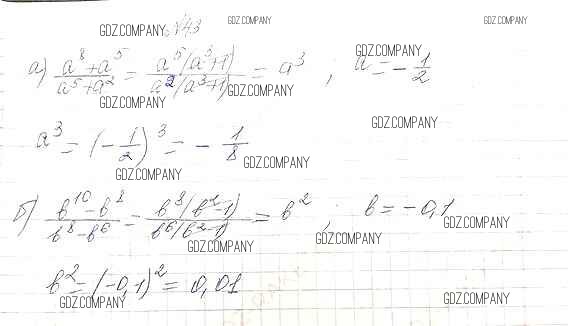 GDZ.COMPANY № 43 GDZ.COMPANY GDZ.COMPANY
GDZ.COMPANY
а) (a⁸+a⁵)/(a⁵+a²) = a⁵(a³+1)/a²(a³+1) = a³ ; a = -1/2
GDZ.COMPANY GDZ.COMPANY
GDZ.COMPANY
a³ = (-1/2)³ = -1/8
GDZ.COMPANY
GDZ.COMPANY
б) (b¹⁰-b⁸)/(b⁸-b⁶) = b⁸(b²-1)/b⁶(b²-1) = b² ; b = -0,1
GDZ.COMPANY
GDZ.COMPANY GDZ.COMPANY
b² = (-0,1)² = 0,01
GDZ.COMPANY GDZ.COMPANY